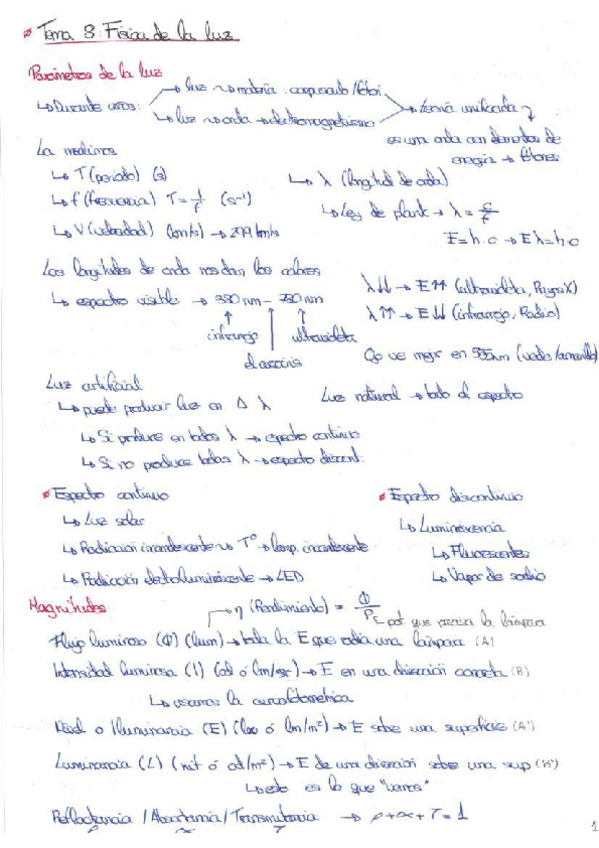 * Tema 8: Física de la luz
Parámetros de la luz
↳ Durante años: → luz ~> materia: corpúsculo/fotón
↳ luz ~> onda → electromagnetismo → teoría unificada
es una onda con elementos de
energía → fotones
La medimos
↳ T (periodo) (s) ↳ λ (longitud de onda)
↳ f (frecuencia) T = 1/f (s⁻¹) ↳ Ley de plank → λ = c/f
↳ V (velocidad) (km/s) → 299 km/s E = h·c → E λ = h·c
Las longitudes de onda nos dan los colores
↳ espectro visible → 380 nm - 780 nm λ↓↓ → E↑↑ (ultravioleta, Rayos X)
λ↑↑ → E↓↓ (infrarrojo, Radio)
infrarrojo ultravioleta
el arcoiris Ojo ve mejor en 555nm (verde/amarillo)
Luz artificial Luz natural → todo el espectro
↳ puede producir luz en Δ λ
↳ Si produce en todas λ → espectro continuo
↳ Si no produce todas λ → espectro discont.
* Espectro continuo * Espectro discontinuo
↳ Luz solar ↳ Luminiscencia
↳ Radiación incandescente ~> Tº → lamp. incandescente ↳ Fluorescentes
↳ Radiación electroluminiscente → LED ↳ Vapor de sodio
Magnitudes → η (Rendimiento) = Φ/P_E pot que precisa la lámpara
Flujo luminoso (Φ) (lum) → toda la E que radia una lámpara (A)
Intensidad luminosa (I) (cd ó lm/sr) → E en una dirección concreta (B)
↳ usamos la curva fotométrica
Nivel o Iluminancia (E) (lux ó lm/m²) → E sobre una superficie (A')
Luminancia (L) (nit ó cd/m²) → E de una dirección sobre una sup (B')
↳ esto es lo que "vemos"
Reflectancia / Absortancia / Transmitancia → ρ + α + τ = 1
ρ α τ
1